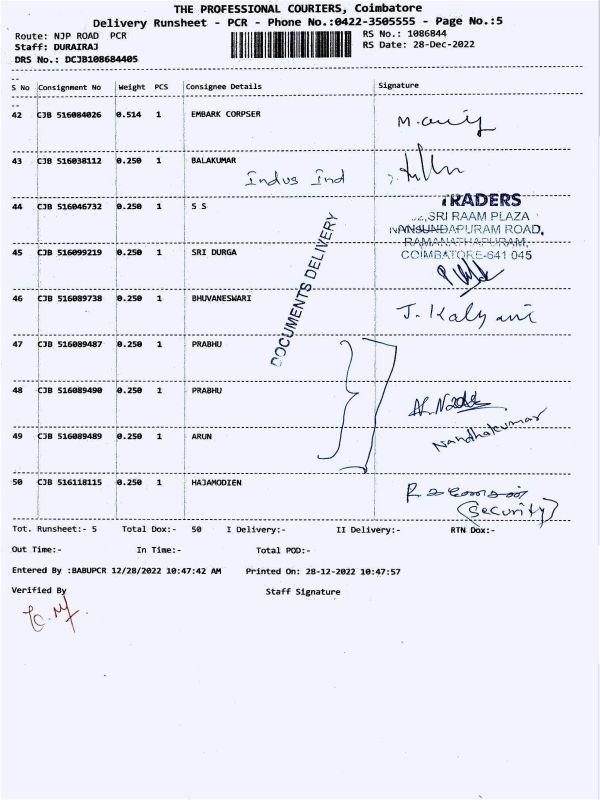 THE PROFESSIONAL COURIERS, Coimbatore
Delivery Runsheet - PCR - Phone No.:0422-3505555 - Page No.:5
Route: NJP ROAD PCR
RS No.: 1086844
Staff: DURAIRAJ
RS Date: 28-Dec-2022
DRS No.: DCJB108684405
S No Consignment No Weight PCS Consignee Details Signature
42 CJB 516084026 0.514 1 EMBARK CORPSER
43 CJB 516038112 0.250 1 BALAKUMAR
Indus Ind
44 CJB 516046732 0.250 1 S S
TRADERS
SRI RAAM PLAZA
NANJUNDAPURAM ROAD,
RAMANATHAPURAM,
COIMBATORE-641 045
45 CJB 516099219 0.250 1 SRI DURGA
DOCUMENTS DELIVERY
46 CJB 516089738 0.250 1 BHUVANESWARI
J. Kalyani
47 CJB 516089487 0.250 1 PRABHU
48 CJB 516089490 0.250 1 PRABHU
49 CJB 516089489 0.250 1 ARUN
Nandhakumar
50 CJB 516118115 0.250 1 HAJAMODIEN
(Security)
Tot. Runsheet:- 5 Total Dox:- 50 I Delivery:- II Delivery:- RTN Dox:-
Out Time:- In Time:- Total POD:-
Entered By :BABUPCR 12/28/2022 10:47:42 AM Printed On: 28-12-2022 10:47:57
Verified By Staff Signature